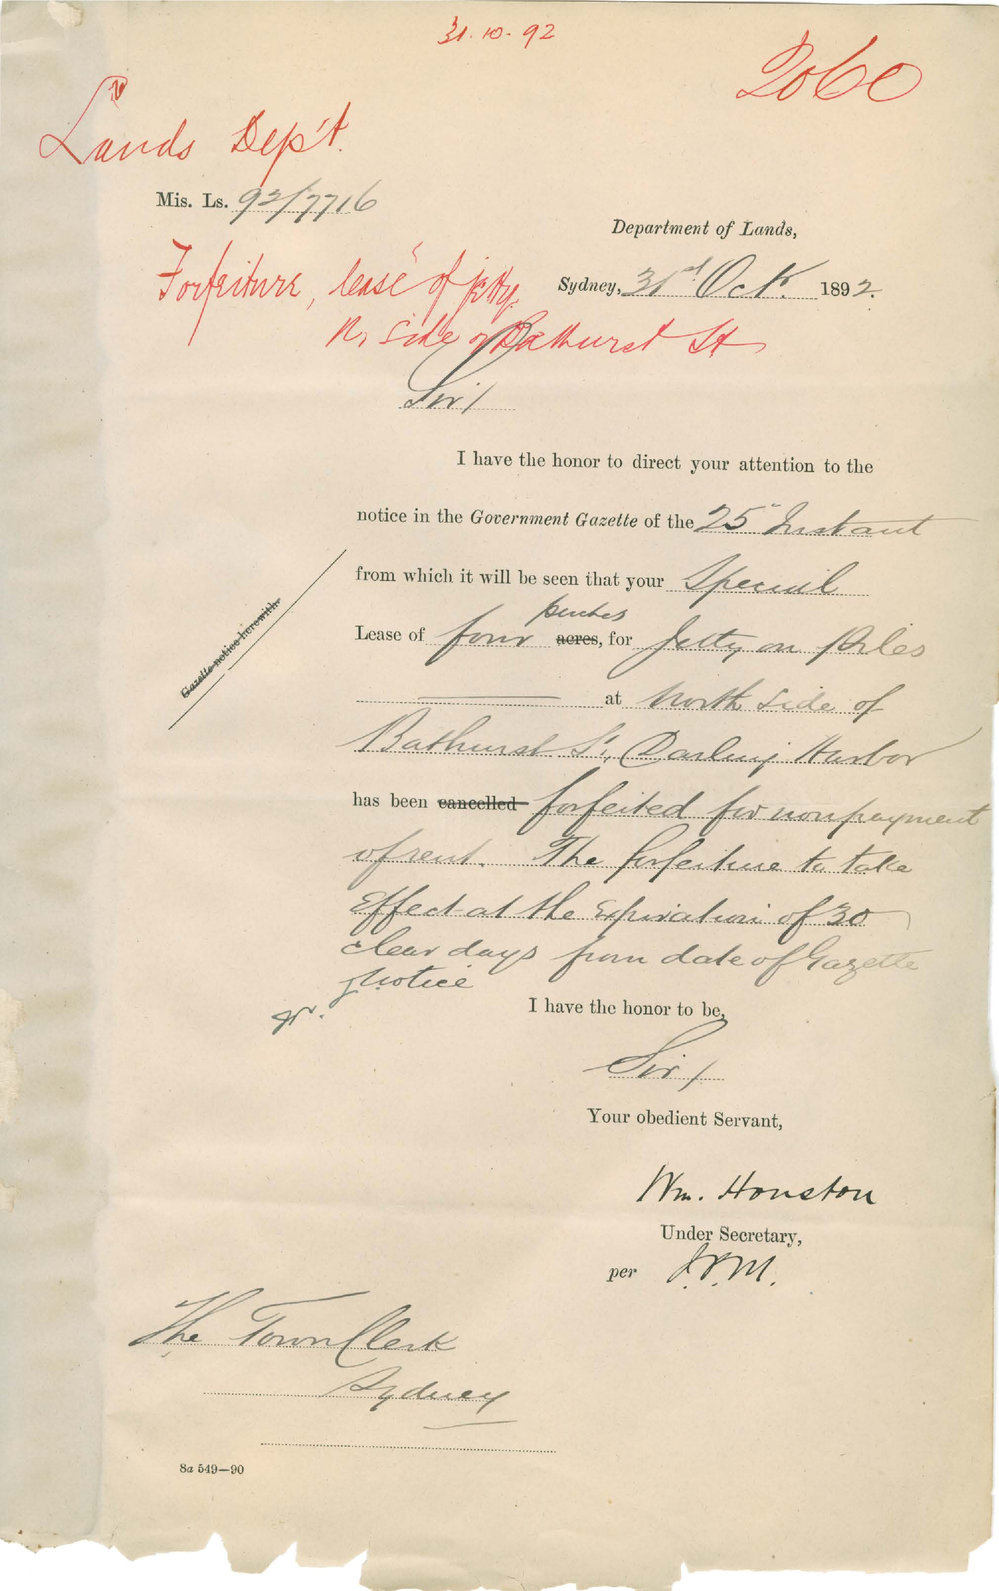 31.10.92
2060
Lands Dep't.
Mis. Ls. 92/7716
Department of Lands,
Forfeiture, lease of jetty.
Sydney, 31st Octr. 1892.
N. side of Bathurst St
Sir/
I have the honor to direct your attention to the
notice in the Government Gazette of the 25" Instant
from which it will be seen that your Special
perches
Lease of four acres, for Jetty on Piles
at North side of
Bathurst St, Darling Harbor
Gazette notice herewith.
has been cancelled forfeited for nonpayment
of rent. The forfeiture to take
Effect at the Expiration of 30
clear days from date of Gazette
Notice
I have the honor to be,
Sir/
Your obedient Servant,
Wm. Houston
Under Secretary,
per
The Town Clerk
Sydney
8a 549—90